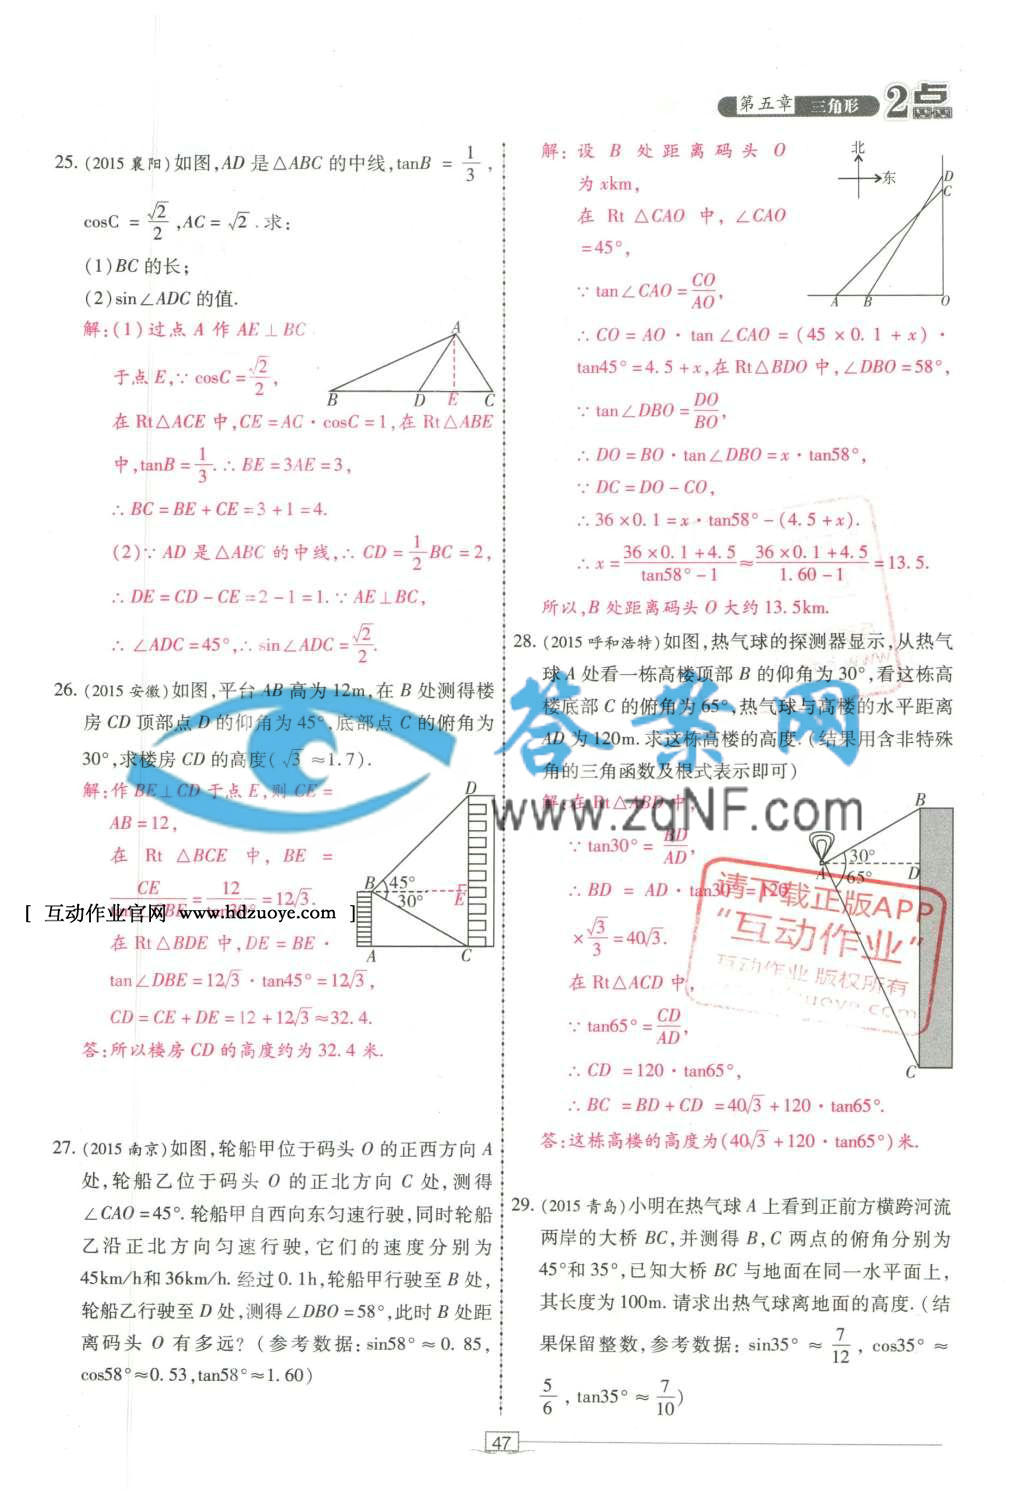 第五章 三角形 2点
25. (2015 襄阳)如图,AD 是△ABC 的中线,tanB = 1/3,
cosC = √2/2, AC = √2. 求:
(1)BC 的长;
(2)sin∠ADC 的值.
解:(1)过点 A 作 AE⊥BC
于点 E,∵ cosC = √2/2,
在 Rt△ACE 中,CE = AC · cosC = 1,在 Rt△ABE
中,tanB = 1/3. ∴ BE = 3AE = 3,
∴ BC = BE + CE = 3 + 1 = 4.
(2)∵ AD 是△ABC 的中线,∴ CD = 1/2 BC = 2,
∴ DE = CD − CE = 2 − 1 = 1. ∵ AE⊥BC,
∴ ∠ADC = 45°,∴ sin∠ADC = √2/2.
A
B D E C
26. (2015 安徽)如图,平台 AB 高为 12m,在 B 处测得楼
房 CD 顶部点 D 的仰角为 45°,底部点 C 的俯角为
30°,求楼房 CD 的高度(√3 ≈1.7).
解:作 BE⊥CD 于点 E,则 CE =
AB = 12,
在 Rt △BCE 中, BE =
CE/tan∠CBE = 12/tan30° = 12√3.
在 Rt△BDE 中,DE = BE ·
tan∠DBE = 12√3 · tan45° = 12√3,
CD = CE + DE = 12 + 12√3 ≈ 32.4.
答:所以楼房 CD 的高度约为 32.4 米.
D
B 45° 30° E
A C
[ 互动作业官网 www.hdzuoye.com ]
27. (2015 南京)如图,轮船甲位于码头 O 的正西方向 A
处,轮船乙位于码头 O 的正北方向 C 处,测得
∠CAO = 45°. 轮船甲自西向东匀速行驶,同时轮船
乙沿正北方向匀速行驶,它们的速度分别为
45km/h和 36km/h. 经过 0.1h,轮船甲行驶至 B 处,
轮船乙行驶至 D 处,测得∠DBO = 58°,此时 B 处距
离码头 O 有多远?(参考数据:sin58°≈0.85,
cos58°≈0.53,tan58°≈1.60)
解: 设 B 处距离码头 O
为 xkm,
在 Rt △CAO 中,∠CAO
= 45°,
∵ tan∠CAO = CO/AO,
∴ CO = AO · tan∠CAO = (45 × 0.1 + x) ·
tan45° = 4.5 + x,在 Rt△BDO 中,∠DBO = 58°,
∵ tan∠DBO = DO/BO,
∴ DO = BO · tan∠DBO = x · tan58°,
∵ DC = DO − CO,
∴ 36 × 0.1 = x · tan58° − (4.5 + x).
∴ x = (36 × 0.1 + 4.5)/(tan58° − 1) ≈ (36 × 0.1 + 4.5)/(1.60 − 1) = 13.5.
所以,B 处距离码头 O 大约 13.5km.
北
东
D
C
A B O
28. (2015 呼和浩特)如图,热气球的探测器显示,从热气
球 A 处看一栋高楼顶部 B 的仰角为 30°,看这栋高
楼底部 C 的俯角为 65°,热气球与高楼的水平距离
AD 为 120m. 求这栋高楼的高度.(结果用含非特殊
角的三角函数及根式表示即可)
解:在 Rt△ABD 中,
∵ tan30° = BD/AD,
∴ BD = AD · tan30° = 120
× √3/3 = 40√3.
在 Rt△ACD 中,
∵ tan65° = CD/AD,
∴ CD = 120 · tan65°,
∴ BC = BD + CD = 40√3 + 120 · tan65°.
答:这栋高楼的高度为(40√3 + 120 · tan65°)米.
B
A 30° 65° D
C
29. (2015 青岛)小明在热气球 A 上看到正前方横跨河流
两岸的大桥 BC,并测得 B,C 两点的俯角分别为
45°和 35°,已知大桥 BC 与地面在同一水平面上,
其长度为 100m. 请求出热气球离地面的高度.(结
果保留整数,参考数据: sin35° ≈ 7/12, cos35° ≈
5/6, tan35° ≈ 7/10)
答案网
www.zqNF.com
请下载正版APP
“互动作业”
互动作业 版权所有
47